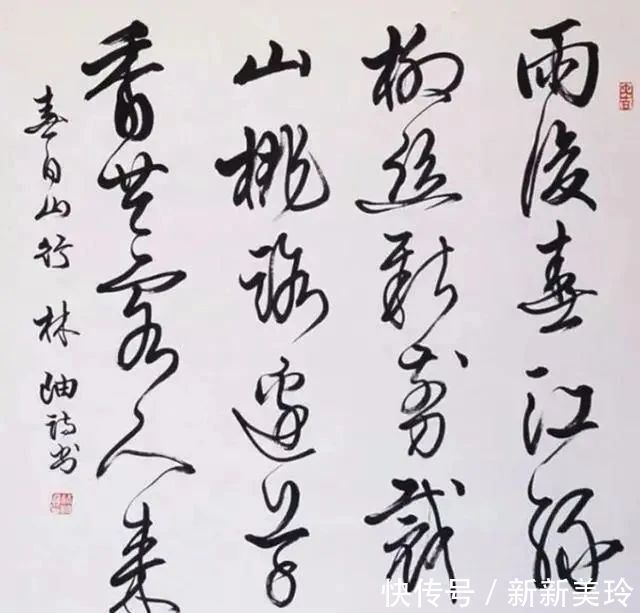 雨後春江緑
柳絲新剪裁
山桃路邊
香共客人来
春日山行 林岫詩书
快传号 / 新新美玲